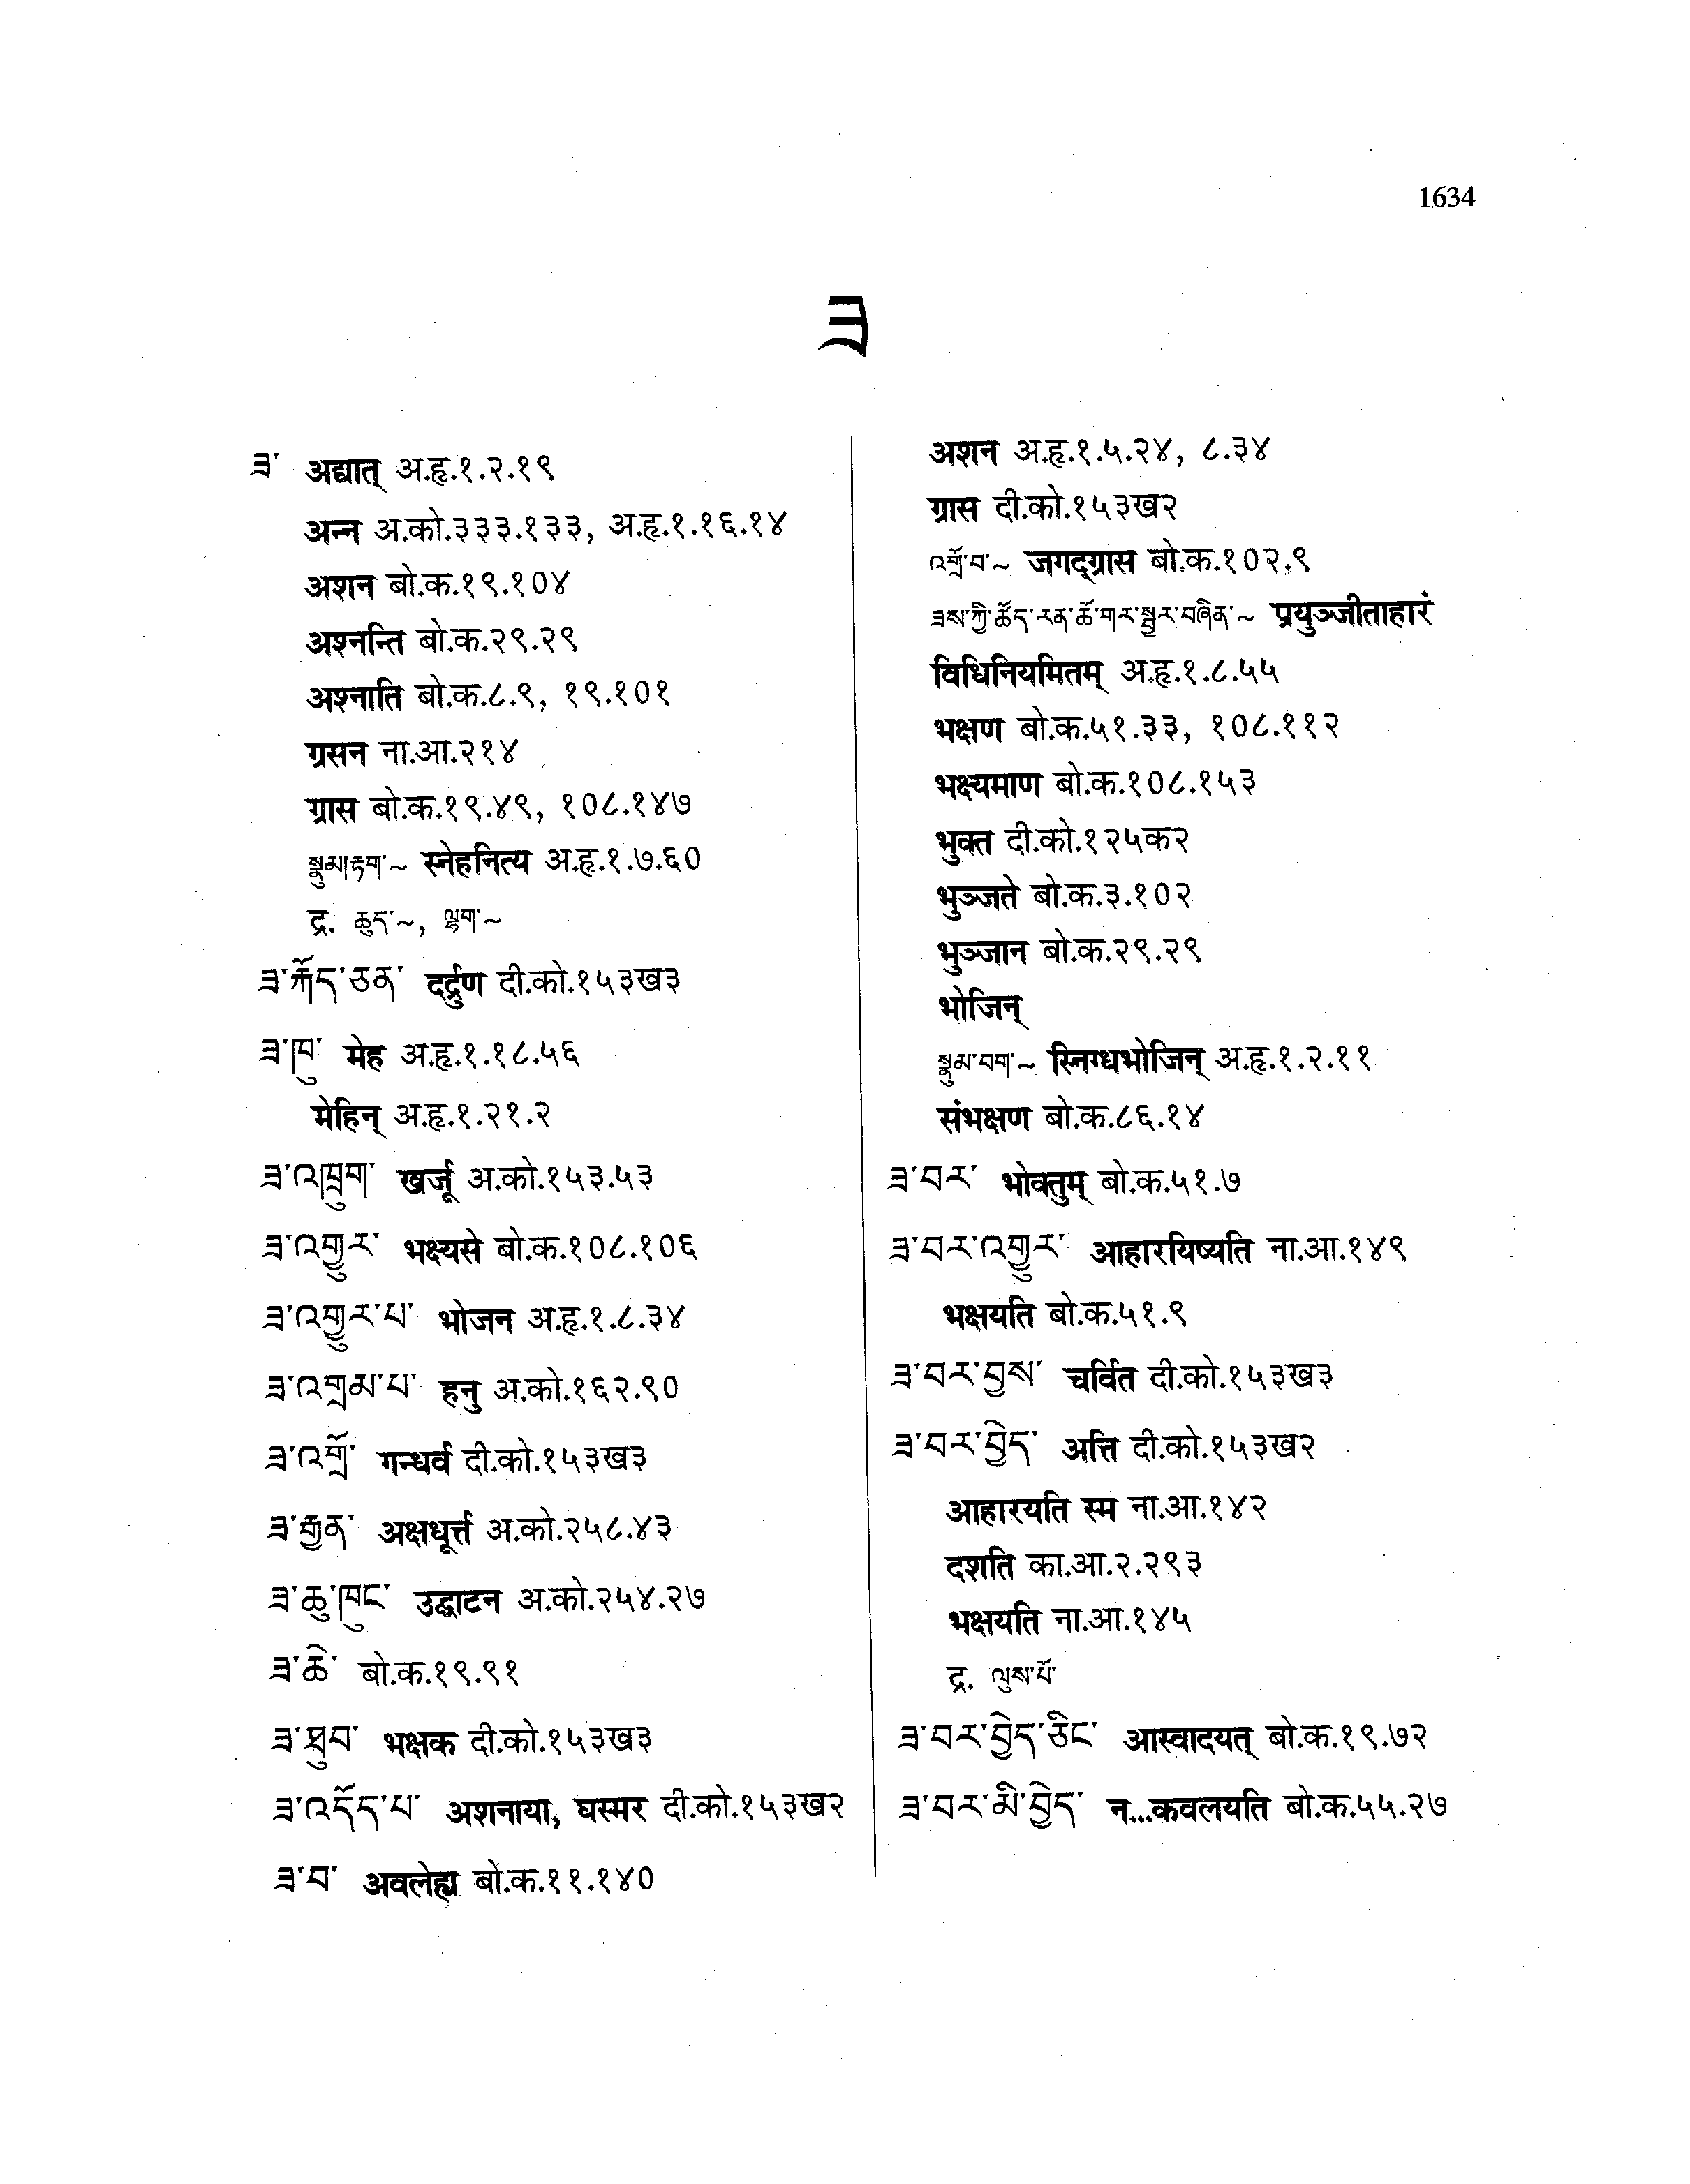 1634
ཟ
ཟ་ अद्यात् अ.हृ.१.२.१९
अन्न अ.को.३३३.१३३, अ.हृ.१.१६.१४
अशन बो.क.१९.१०४
अश्नन्ति बो.क.२९.२९
अश्नाति बो.क.८.९, १९.१०१
ग्रसन ना.आ.२१४
ग्रास बो.क.१९.४९, १०८.१४७
སྣུམ།རྟག་~ स्नेहनित्य अ.हृ.१.७.६०
द्र. ཆུད་~, ལྷག་~
ཟ་ཀོད་ཅན་ दर्द्रुण दी.को.१५३ख३
ཟ་ཁུ་ मेह अ.हृ.१.१८.५६
मेहिन् अ.हृ.१.२१.२
ཟ་འཁྲུག་ खर्जू अ.को.१५३.५३
ཟ་འགྱུར་ भक्ष्यसे बो.क.१०८.१०६
ཟ་འགྱུར་པ་ भोजन अ.हृ.१.८.३४
ཟ་འགྲམ་པ་ हनु अ.को.१६२.९०
ཟ་འགྲོ་ गन्धर्व दी.को.१५३ख३
ཟ་རྒྱན་ अक्षधूर्त्त अ.को.२५८.४३
ཟ་ཆུ་ཁུང་ उद्घाटन अ.को.२५४.२७
ཟ་ཆེ་ बो.क.१९.९१
ཟ་ཐུབ་ भक्षक दी.को.१५३ख३
ཟ་འདོད་པ་ अशनाया, घस्मर दी.को.१५३ख२
ཟ་བ་ अवलेह्य बो.क.११.१४०
अशन अ.हृ.१.५.२४, ८.३४
ग्रास दी.को.१५३ख२
འགྲོ་བ་~ जगद्ग्रास बो.क.१०२.९
ཟས་ཀྱི་ཚོད་རན་ཆོ་གར་སྦྱར་བཞིན་~ प्रयुञ्जीताहारं
विधिनियमितम् अ.हृ.१.८.५५
भक्षण बो.क.५१.३३, १०८.११२
भक्ष्यमाण बो.क.१०८.१५३
भुक्त दी.को.१२५क२
भुञ्जते बो.क.३.१०२
भुञ्जान बो.क.२९.२९
भोजिन्
སྣུམ་བག་~ स्निग्धभोजिन् अ.हृ.१.२.११
संभक्षण बो.क.८६.१४
ཟ་བར་ भोक्तुम् बो.क.५१.७
ཟ་བར་འགྱུར་ आहारयिष्यति ना.आ.१४९
भक्षयति बो.क.५१.९
ཟ་བར་བྱས་ चर्वित दी.को.१५३ख३
ཟ་བར་བྱེད་ अत्ति दी.को.१५३ख२
आहारयति स्म ना.आ.१४२
दशति का.आ.२.२९३
भक्षयति ना.आ.१४५
द्र. ལུས་པོ་
ཟ་བར་བྱེད་ཅིང་ आस्वादयत् बो.क.१९.७२
ཟ་བར་མི་བྱེད་ न...कवलयति बो.क.५५.२७